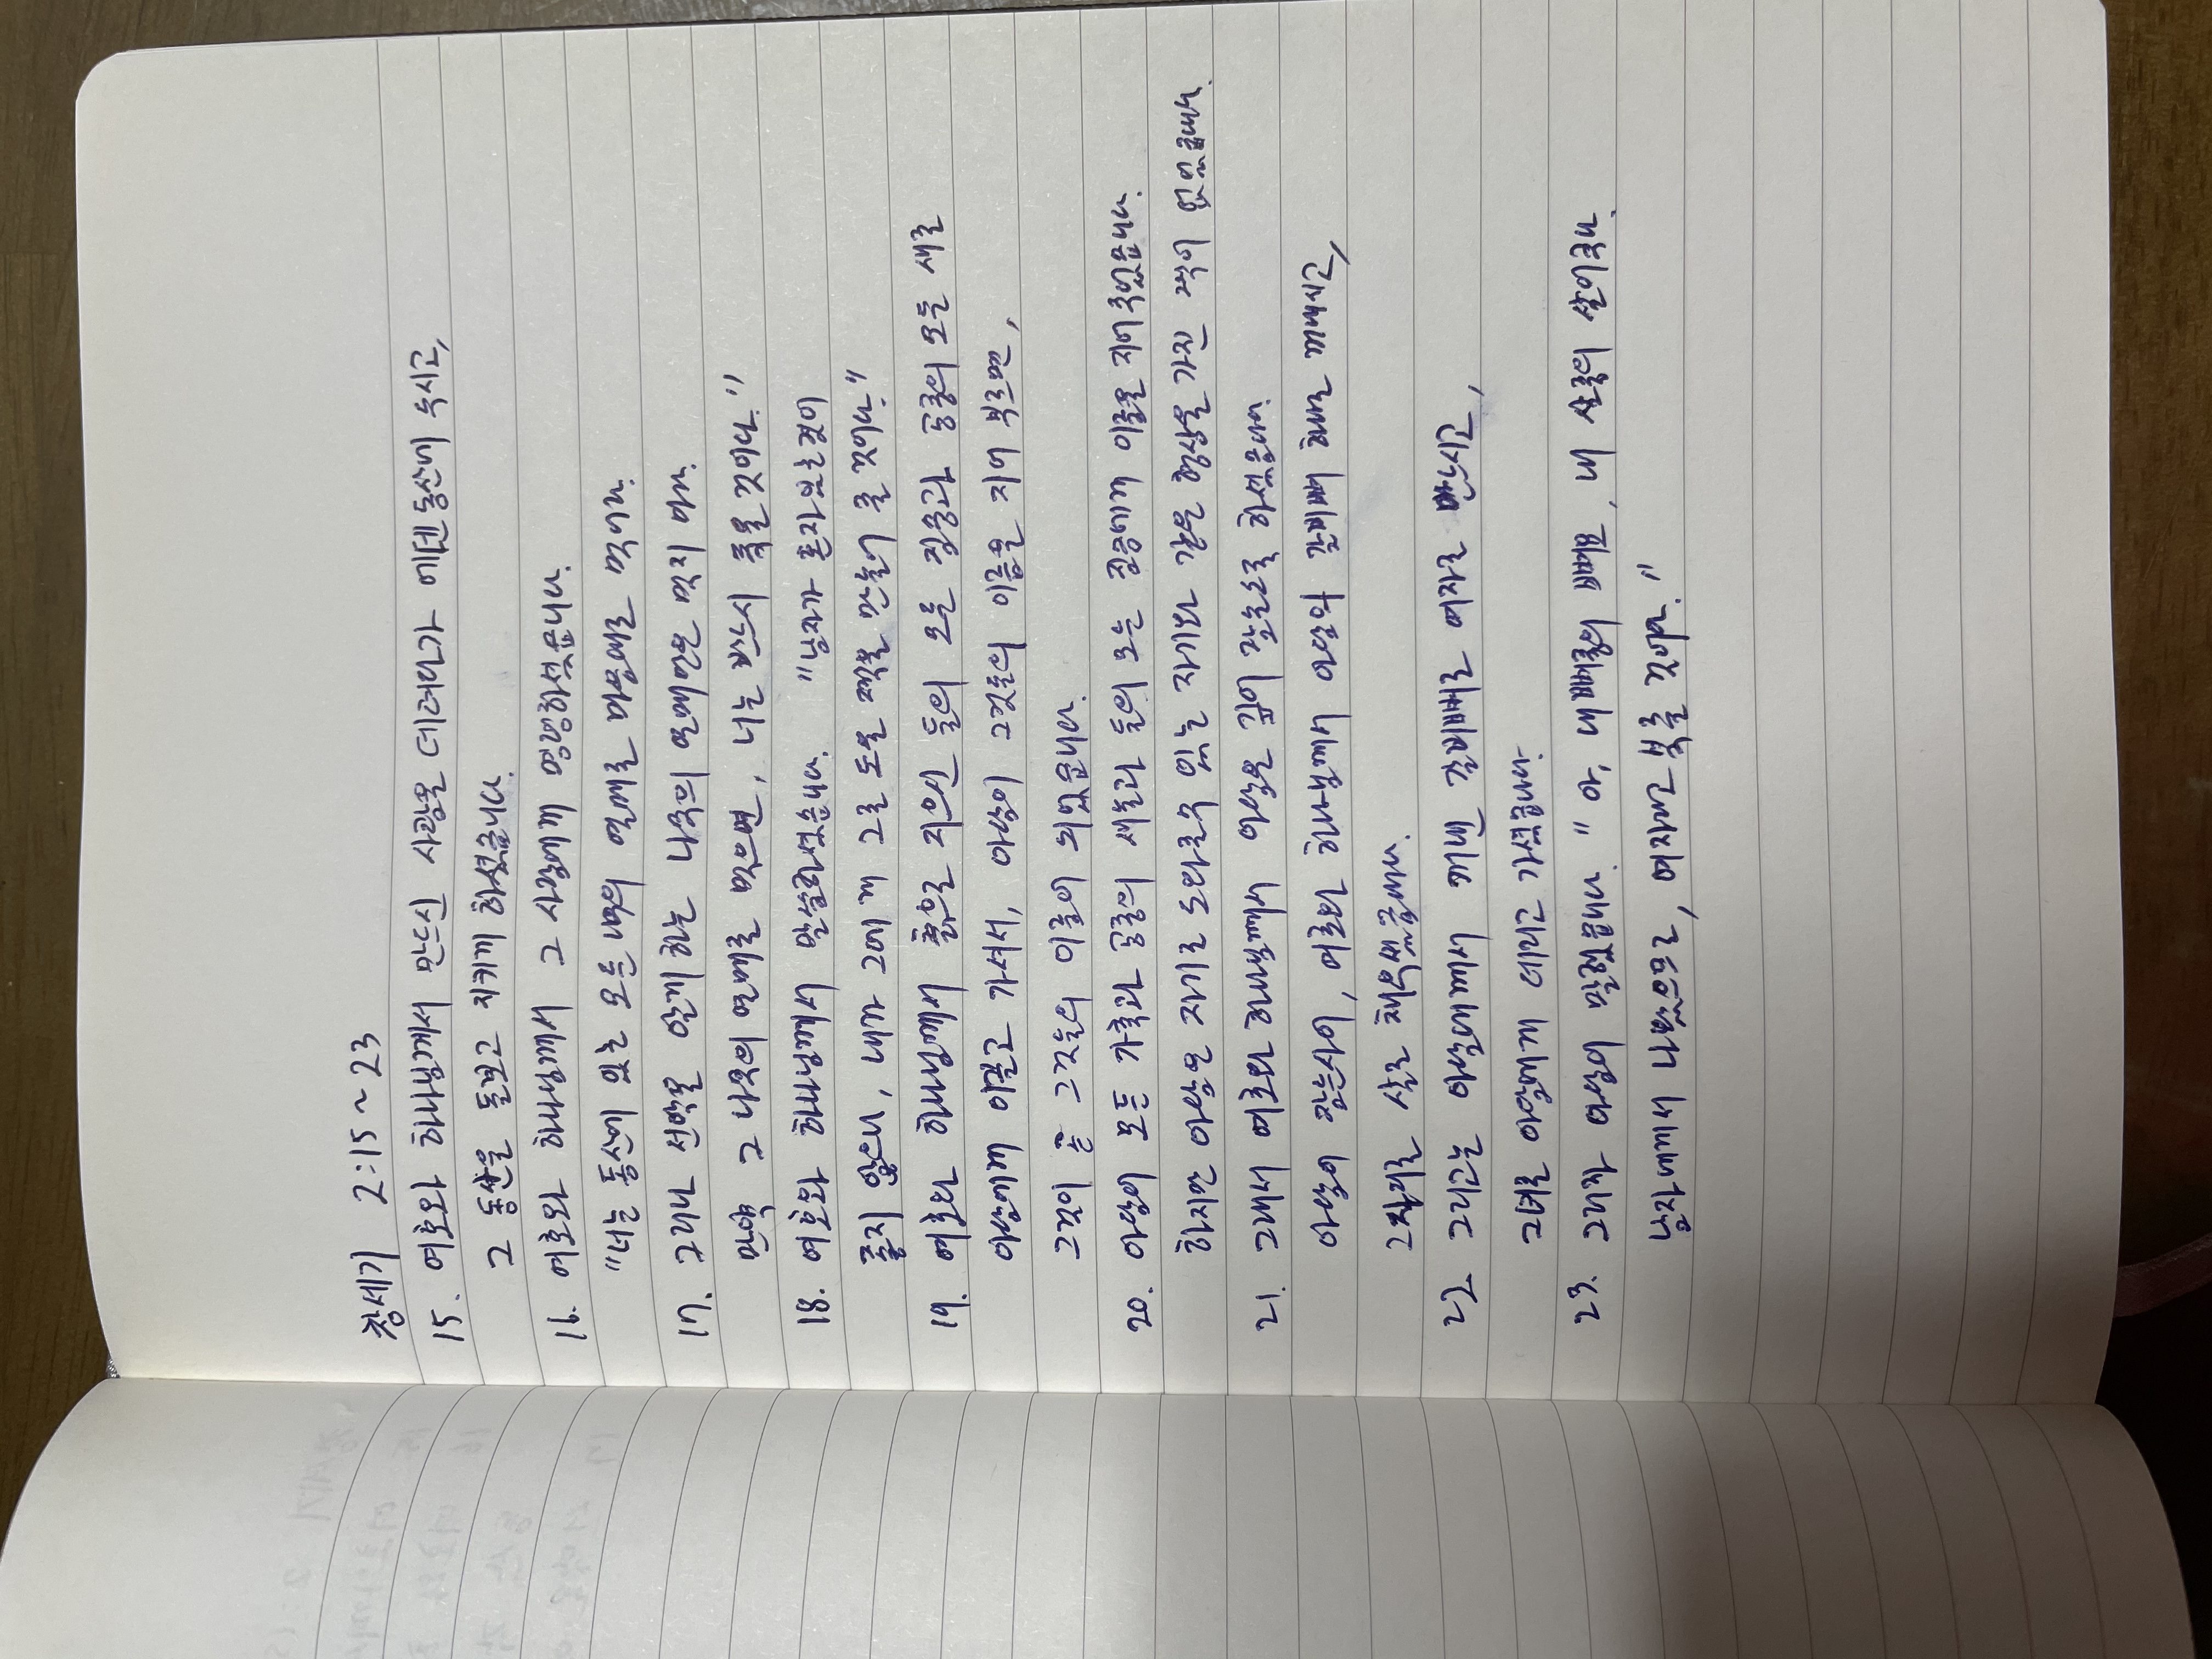 창세기 2:15~23
15. 여호와 하나님께서 만드신 사람을 데려다가 에덴 동산에 두시고,
그 동산을 돌보고 지키게 하셨습니다.
16. 여호와 하나님께서 그 사람에게 명령하셨습니다.
"너는 동산에 있는 모든 나무의 열매를 마음대로 먹어라.
17. 그러나 선악을 알게 하는 나무의 열매만은 먹지 마라.
만약 그 나무의 열매를 먹으면, 너는 반드시 죽을 것이다."
18. 여호와 하나님께서 말씀하셨습니다. "남자가 혼자 있는 것이
좋지 않으니, 내가 그에게 그를 도울 짝을 만들어 줄 것이다."
19. 여호와 하나님께서 흙으로 지으신 들의 모든 짐승과 공중의 모든 새를
아담에게 이끌고 가셔서, 아담이 그것들의 이름을 지어 부르면,
그것이 곧 그것들의 이름이 되었습니다.
20. 아담이 모든 가축과 공중의 새들과 들의 모든 짐승에게 이름을 지어 주었습니다.
하지만 아담은 자기를 도와줄 수 있는 자기와 같은 형상을 가진 짝이 없었습니다.
21. 그래서 여호와 하나님께서 아담을 깊이 잠들도록 하셨습니다.
아담이 잠든 사이, 여호와 하나님께서 아담의 갈비뼈 하나를 꺼내시고,
그 자리를 살로 채우셨습니다.
22 그리고는 아담에게서 꺼낸 갈비뼈로 여자를 만드시고,
그녀를 아담에게 데리고 가셨습니다.
23. 그러자 아담이 말했습니다. "아, 내 뼈 중의 뼈요, 내 살 중의 살이로다.
남자에게서 나왔으므로, 여자라고 부를 것이다."